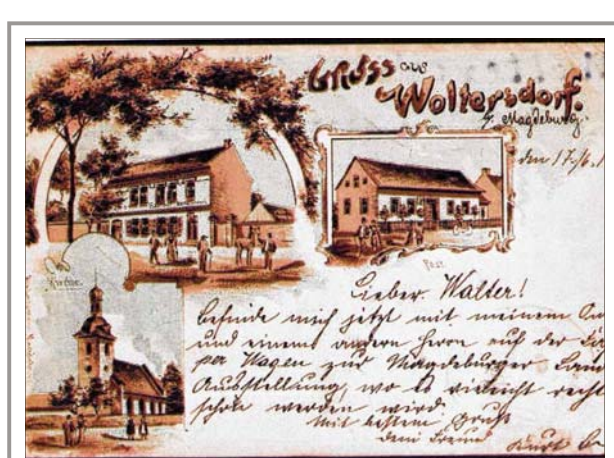 Gruss aus
Woltersdorf.
b. Magdeburg.
den 17./6.
Kirche.
Post.
Lieber Walter!
Befinde mich jetzt mit meinem On
und einem andern Herrn auf der
per Wagen zur Magdeburger Land
Ausstellung, wo es vieleicht recht
schön werden wird.
Mit bestem Gruß
dein Freund
Kurt